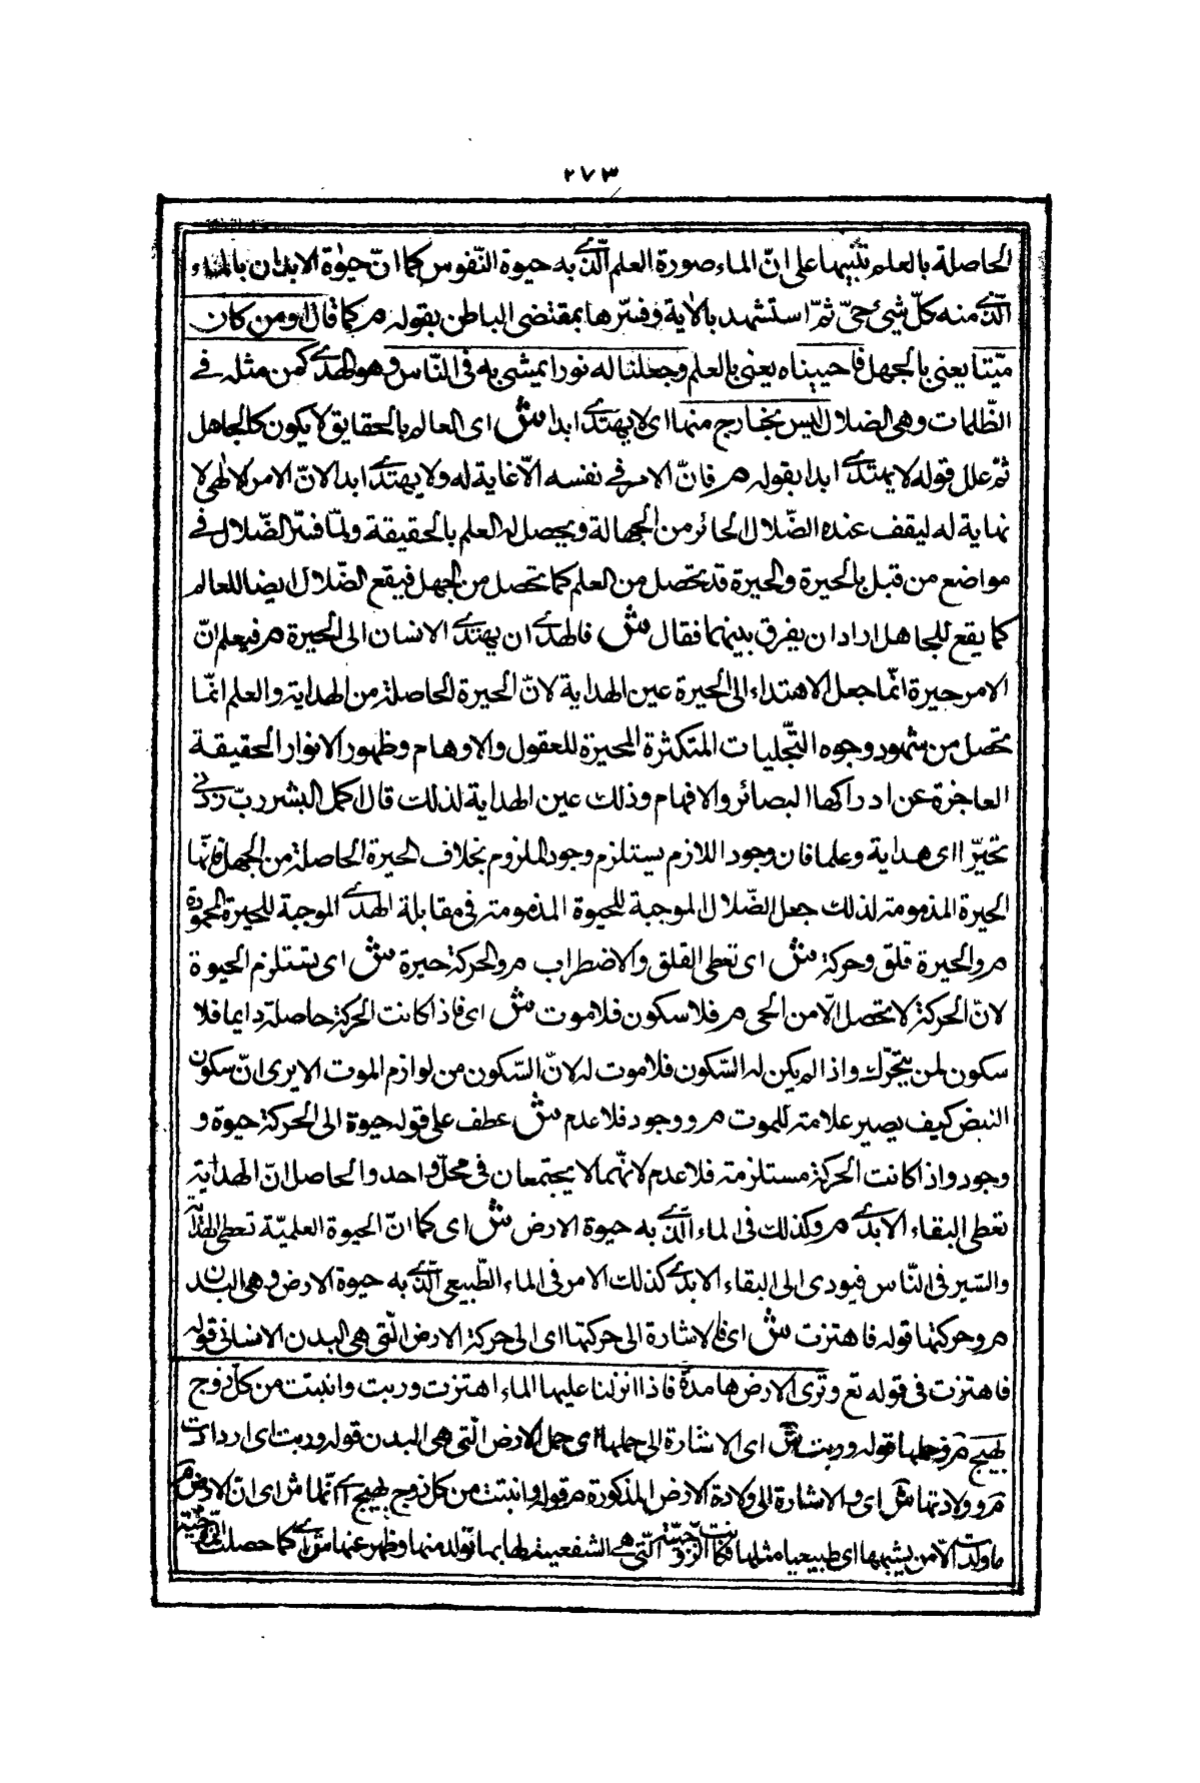 ٢٧٣
الحاصلة بالعلم تنبيها على انّ الماء صورة العلم الّذى به حيوة النّفوس كما انّ حيوة الابدان بالماء
الّذى منه كلّ شيئ حىّ ثمّ استشهد بالاية وفسّرها بمقتضى الباطن بقوله م كما قال اومن كان
ميّتا يعنى بالجهل فاحييناه يعنى بالعلم وجعلنا له نورا يمشى به فى النّاس وهو الهدى كمن مثله فى
الظّلمات وهى الضلال ليس بخارج منها اى لا يهتدى ابدا ش اى العالم بالحقايق لا يكون كالجاهل
ثم علل قوله لا يهتدى ابدا بقوله م فانّ الامر فى نفسه لا غاية له ولا يهتدى ابدا لانّ الامر الالهى لا
نهاية له ليقف عنده الضّلال الحائر من الجهالة ويحصل له العلم بالحقيقة ولمّا فسّر الضّلال فى
مواضع من قبل بالحيرة والحيرة قد تحصل من العلم كما تحصل من الجهل فيقع الضّلال ايضا للعالم
كما يقع للجاهل اراد ان يفرق بينهما فقال ش فالهدى ان يهتدى الانسان الى الحيرة م فيعلم انّ
الامر حيرة انّما جعل الاهتداء الى الحيرة عين الهداية لانّ الحيرة الحاصلة من الهداية والعلم انّما
تحصل من شهود وجوه التّجليات المتكثرة المحيرة للعقول والاوهام وظهور الانوار الحقيقة
العاجزة عن ادراكها البصائر والافهام وذلك عين الهداية لذلك قال اكمل البشر ربّ زدنى
تحيّرا اى هداية وعلما فان وجود اللازم يستلزم وجود الملزوم بخلاف الحيرة الحاصلة من الجهل فانّها
الحيرة المذمومة لذلك جعل الضّلال الموجبة للحيوة المذمومة فى مقابلة الهدى الموجبة للحيرة المحمودة
م والحيرة قلق وحركة ش اى تعطى القلق والاضطراب م والحركة حيرة ش اى يستلزم الحيوة
لانّ الحركة لا تحصل الّا من الحى م فلا سكون فلا موت ش اى فاذا كانت الحركة حاصلة دايما فلا
سكون لمن يتحرّك واذا لم يكن له السّكون فلا موت له لانّ السّكون من لوازم الموت الا يرى انّ سكون
النبض كيف يصير علامة للموت م ووجود فلا عدم ش عطف على قوله حيوة الى الحركة حيوة و
وجود واذا كانت الحركة مستلزمة فلا عدم لانّهما لا يجتمعان فى محلّ واحد والحاصل انّ الهداية
تعطى البقاء الابدى م وكذلك فى الماء الّذى به حيوة الارض ش اى كما انّ الحيوة العلميّة تعطى الهداية
والسّير فى النّاس فيودى الى البقاء الابدى كذلك الامر فى الماء الطّبيعى الّذى به حيوة الارض وهى البدن
م وحركتها قوله فاهتزت ش اى فالاشارة الى حركتها اى الى حركة الارض الّتى هى البدن الانسانى قوله
فاهتزت فى قوله تع وترى الارض هامدة فاذا انزلنا عليها الماء اهتزت وربت وانبتت من كل زوج
بهيج م وحملها قوله وربت ش اى الاشارة الى حملها اى حمل الارض الّتى هى البدن قوله وربت اى ازدادت
م وولادتها ش اى والاشارة الى ولادة الارض المذكورة م قوله وانبتت من كل زوج بهيج اى انّها ش اى انّ الارض م
ما ولدت الّا من يشبهها اى طبيعيا مثلها فكانت الزوجيّة الّتى هى الشفعيّة لها بما تولد منها وظهر عنها ش اى كما حصلت الزوجيّة